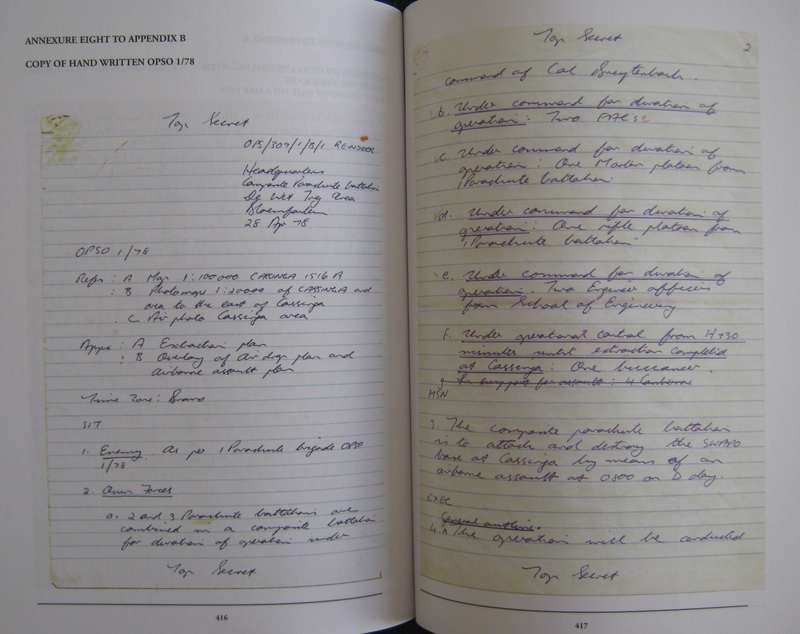 ANNEXURE EIGHT TO APPENDIX B
COPY OF HAND WRITTEN OPSO 1/78
Top Secret
OPS/307/1/B/1 RENDEER
Headquarters
Composite Parachute battalion
De Wet Trg Area
Bloemfontein
28 Apr 78
OPSO 1/78
Refs: A Map 1:100000 CASSINGA 1516 A
: B Photomap 1:20000 of CASSINGA and
area to the east of Cassinga
: C Air photo Cassinga area
Apps: A Extraction plan
: B Overlay of Air drop plan and
airborne assault plan
Time Zone: Bravo
SIT
1. Enemy. As per 1 Parachute brigade OPSO
1/78
2. Own Forces
a. 2 and 3 Parachute battalions are
combined in a composite battalion
for duration of operation under
Top Secret
416
Top Secret
2
command of Col Breytenbach.
b. Under command for duration of
operation: Two
c. Under command for duration of
operation: One Mortar platoon from
1 Parachute battalion
d. Under command for duration of
operation: One rifle platoon from
1 Parachute battalion
e. Under command for duration of
operation: Two Engineer officers
from School of Engineering
f. Under operational control from H+30
minutes until extraction completed
at Cassinga: One buccaneer.
g. In support for assault: 4 Canberra
MSN
3. The composite parachute battalion
is to attack and destroy the SWAPO
base at Cassinga by means of an
airborne assault at 0800 on D day.
EXEC
General outline.
4. The operation will be conducted
Top Secret
417